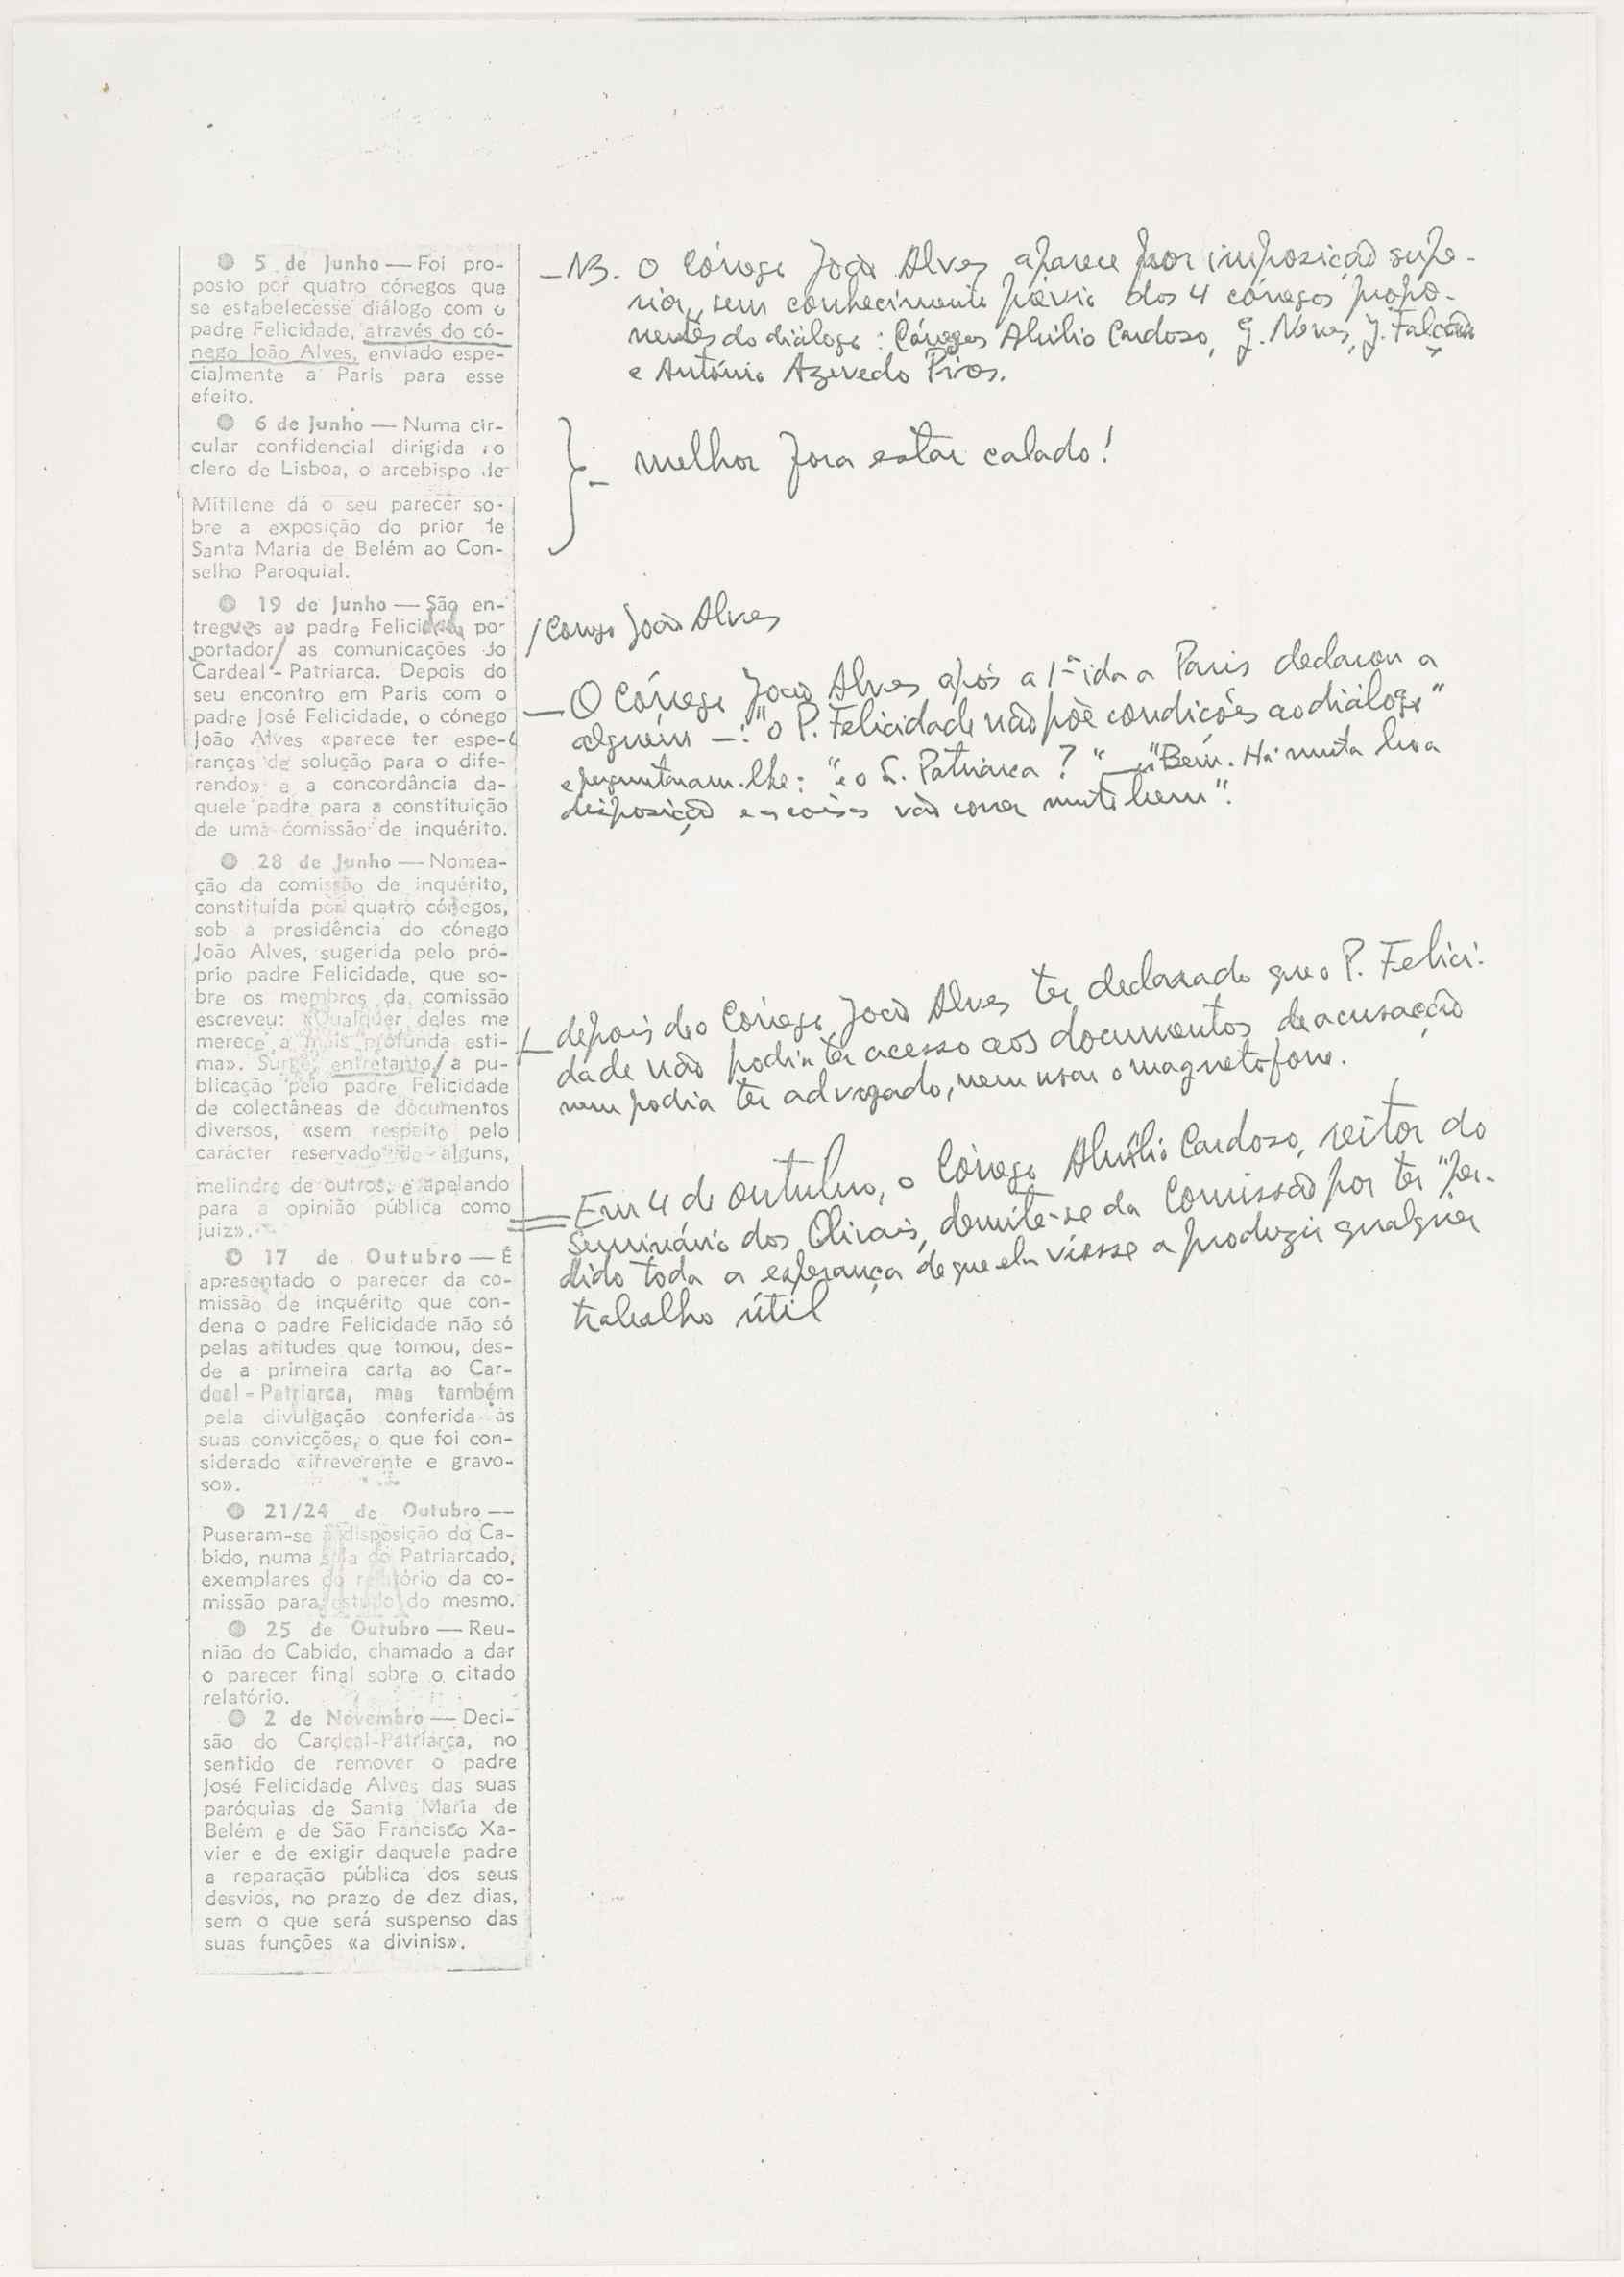 ● 5 de Junho — Foi pro-
posto por quatro cónegos que
se estabelecesse diálogo com o
padre Felicidade, através do có-
nego João Alves, enviado espe-
cialmente a Paris para esse
efeito.
● 6 de Junho — Numa cir-
cular confidencial dirigida ao
clero de Lisboa, o arcebispo de
Mitilene dá o seu parecer so-
bre a exposição do prior de
Santa Maria de Belém ao Con-
selho Paroquial.
● 19 de Junho — São en-
tregues ao padre Felicidade por
portador/ as comunicações do
Cardeal-Patriarca. Depois do
seu encontro em Paris com o
padre José Felicidade, o cónego
João Alves «parece ter espe-
ranças de solução para o dife-
rendo» e a concordância da-
quele padre para a constituição
de uma comissão de inquérito.
● 28 de Junho — Nomea-
ção da comissão de inquérito,
constituída por quatro cónegos,
sob a presidência do cónego
João Alves, sugerida pelo pró-
prio padre Felicidade, que so-
bre os membros da comissão
escreveu: «Qualquer deles me
merece a mais profunda esti-
ma». Surge, entretanto/ a pu-
blicação pelo padre Felicidade
de colectâneas de documentos
diversos, «sem respeito pelo
carácter reservado de alguns,
melindre de outros, e apelando
para a opinião pública como
juiz».
● 17 de Outubro — É
apresentado o parecer da co-
missão de inquérito que con-
dena o padre Felicidade não só
pelas atitudes que tomou, des-
de a primeira carta ao Car-
deal-Patriarca, mas também
pela divulgação conferida às
suas convicções, o que foi con-
siderado «irreverente e gravo-
so».
● 21/24 de Outubro —
Puseram-se à disposição do Ca-
bido, numa sala do Patriarcado,
exemplares do relatório da co-
missão para estudo do mesmo.
● 25 de Outubro — Reu-
nião do Cabido, chamado a dar
o parecer final sobre o citado
relatório.
● 2 de Novembro — Deci-
são do Cardeal-Patriarca, no
sentido de remover o padre
José Felicidade Alves das suas
paróquias de Santa Maria de
Belém e de São Francisco Xa-
vier e de exigir daquele padre
a reparação pública dos seus
desvios, no prazo de dez dias,
sem o que será suspenso das
suas funções «a divinis».
– NB. O Cónego João Alves aparece por imposição supe-
rior, sem conhecimento prévio dos 4 cónegos propo-
nentes do diálogo: Cónegos Abílio Cardoso, G. Neves, J. Falcão
e António Azevedo Pires.
} – melhor fora estar calado!
/ Conego João Alves
– O Cónego João Alves após a 1ª ida a Paris declarou a
alguém –: "o P. Felicidade não põe condições ao diálogo"
e perguntaram-lhe: "e o S. Patriarca?" – "Bem. Há muita boa
disposição e as coisas vão correr muito bem".
depois de o Cónego João Alves ter declarado que o P. Felici-
dade não podia ter acesso aos documentos de acusação
nem podia ter advogado, nem usar o magnetofone.
= Em 4 de outubro, o Cónego Abílio Cardoso, reitor do
Seminário dos Olivais, demite-se da Comissão por ter "per-
dido toda a esperança de que ela viesse a produzir qualquer
trabalho útil